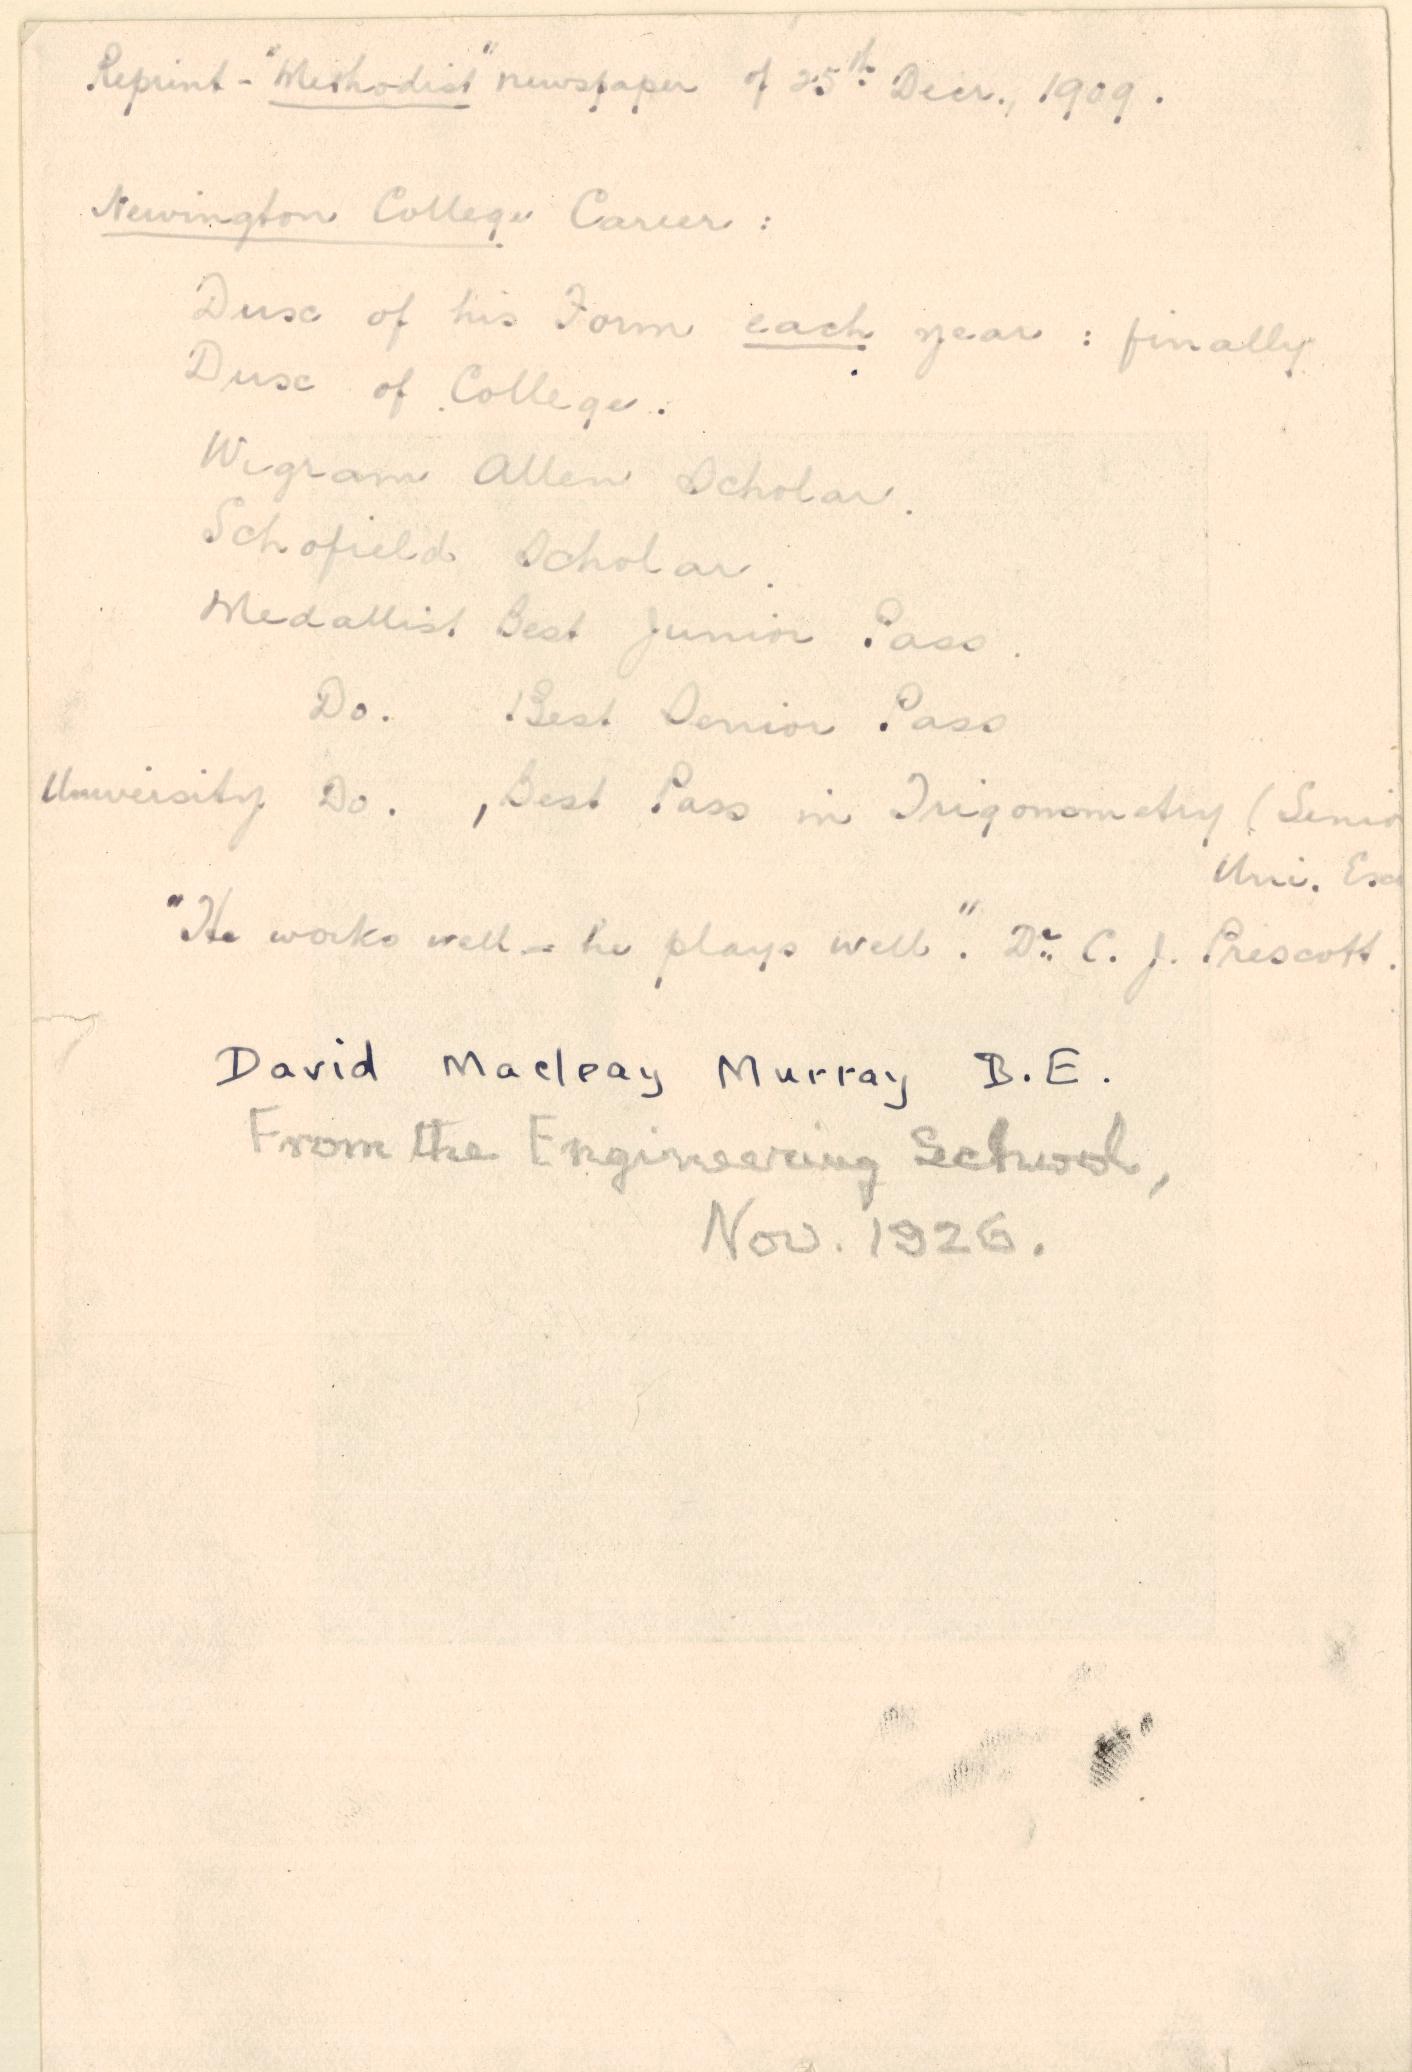 Reprint - "Methodist" newspaper of 25th Decr., 1909.
Newington College Career :
Dux of his Form each year : finally
Dux of College.
Wigram Allen Scholar.
Schofield Scholar.
Medallist Best Junior Pass.
Do. Best Senior Pass
University Do. , Best Pass in Trigonometry (Senior
Uni. Exa
"He works well - he plays well". Dr. C. J. Prescott.
David Macleay Murray B.E.
From the Engineering School,
Nov. 1926.